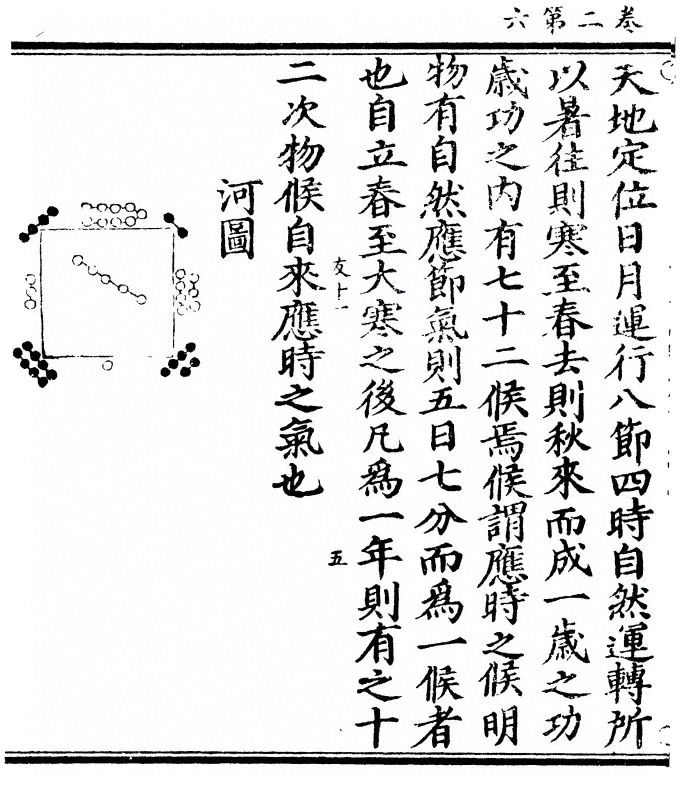 卷二第六
天地定位日月運行八節四時自然運轉所
以暑往則寒至春去則秋來而成一歳之功
歳功之内有七十二候焉候謂應時之候明
物有自然應節氣則五日七分而爲一候者
也自立春至大寒之後凡爲一年則有之十
友十一
五
二次物候自來應時之氣也
河圖